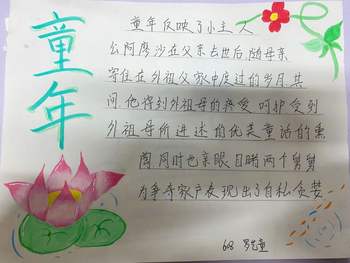 童年
童年反映了小主人
公阿廖沙在父亲去世后,随母亲
寄住在外祖父家中度过的岁月.其
间.他得到外祖母的疼爱.呵护.受到
外祖母所讲述的优美童话的熏
陶.同时也亲眼目睹两个舅舅
为争夺家产表现出了自私贪婪
罗艺童